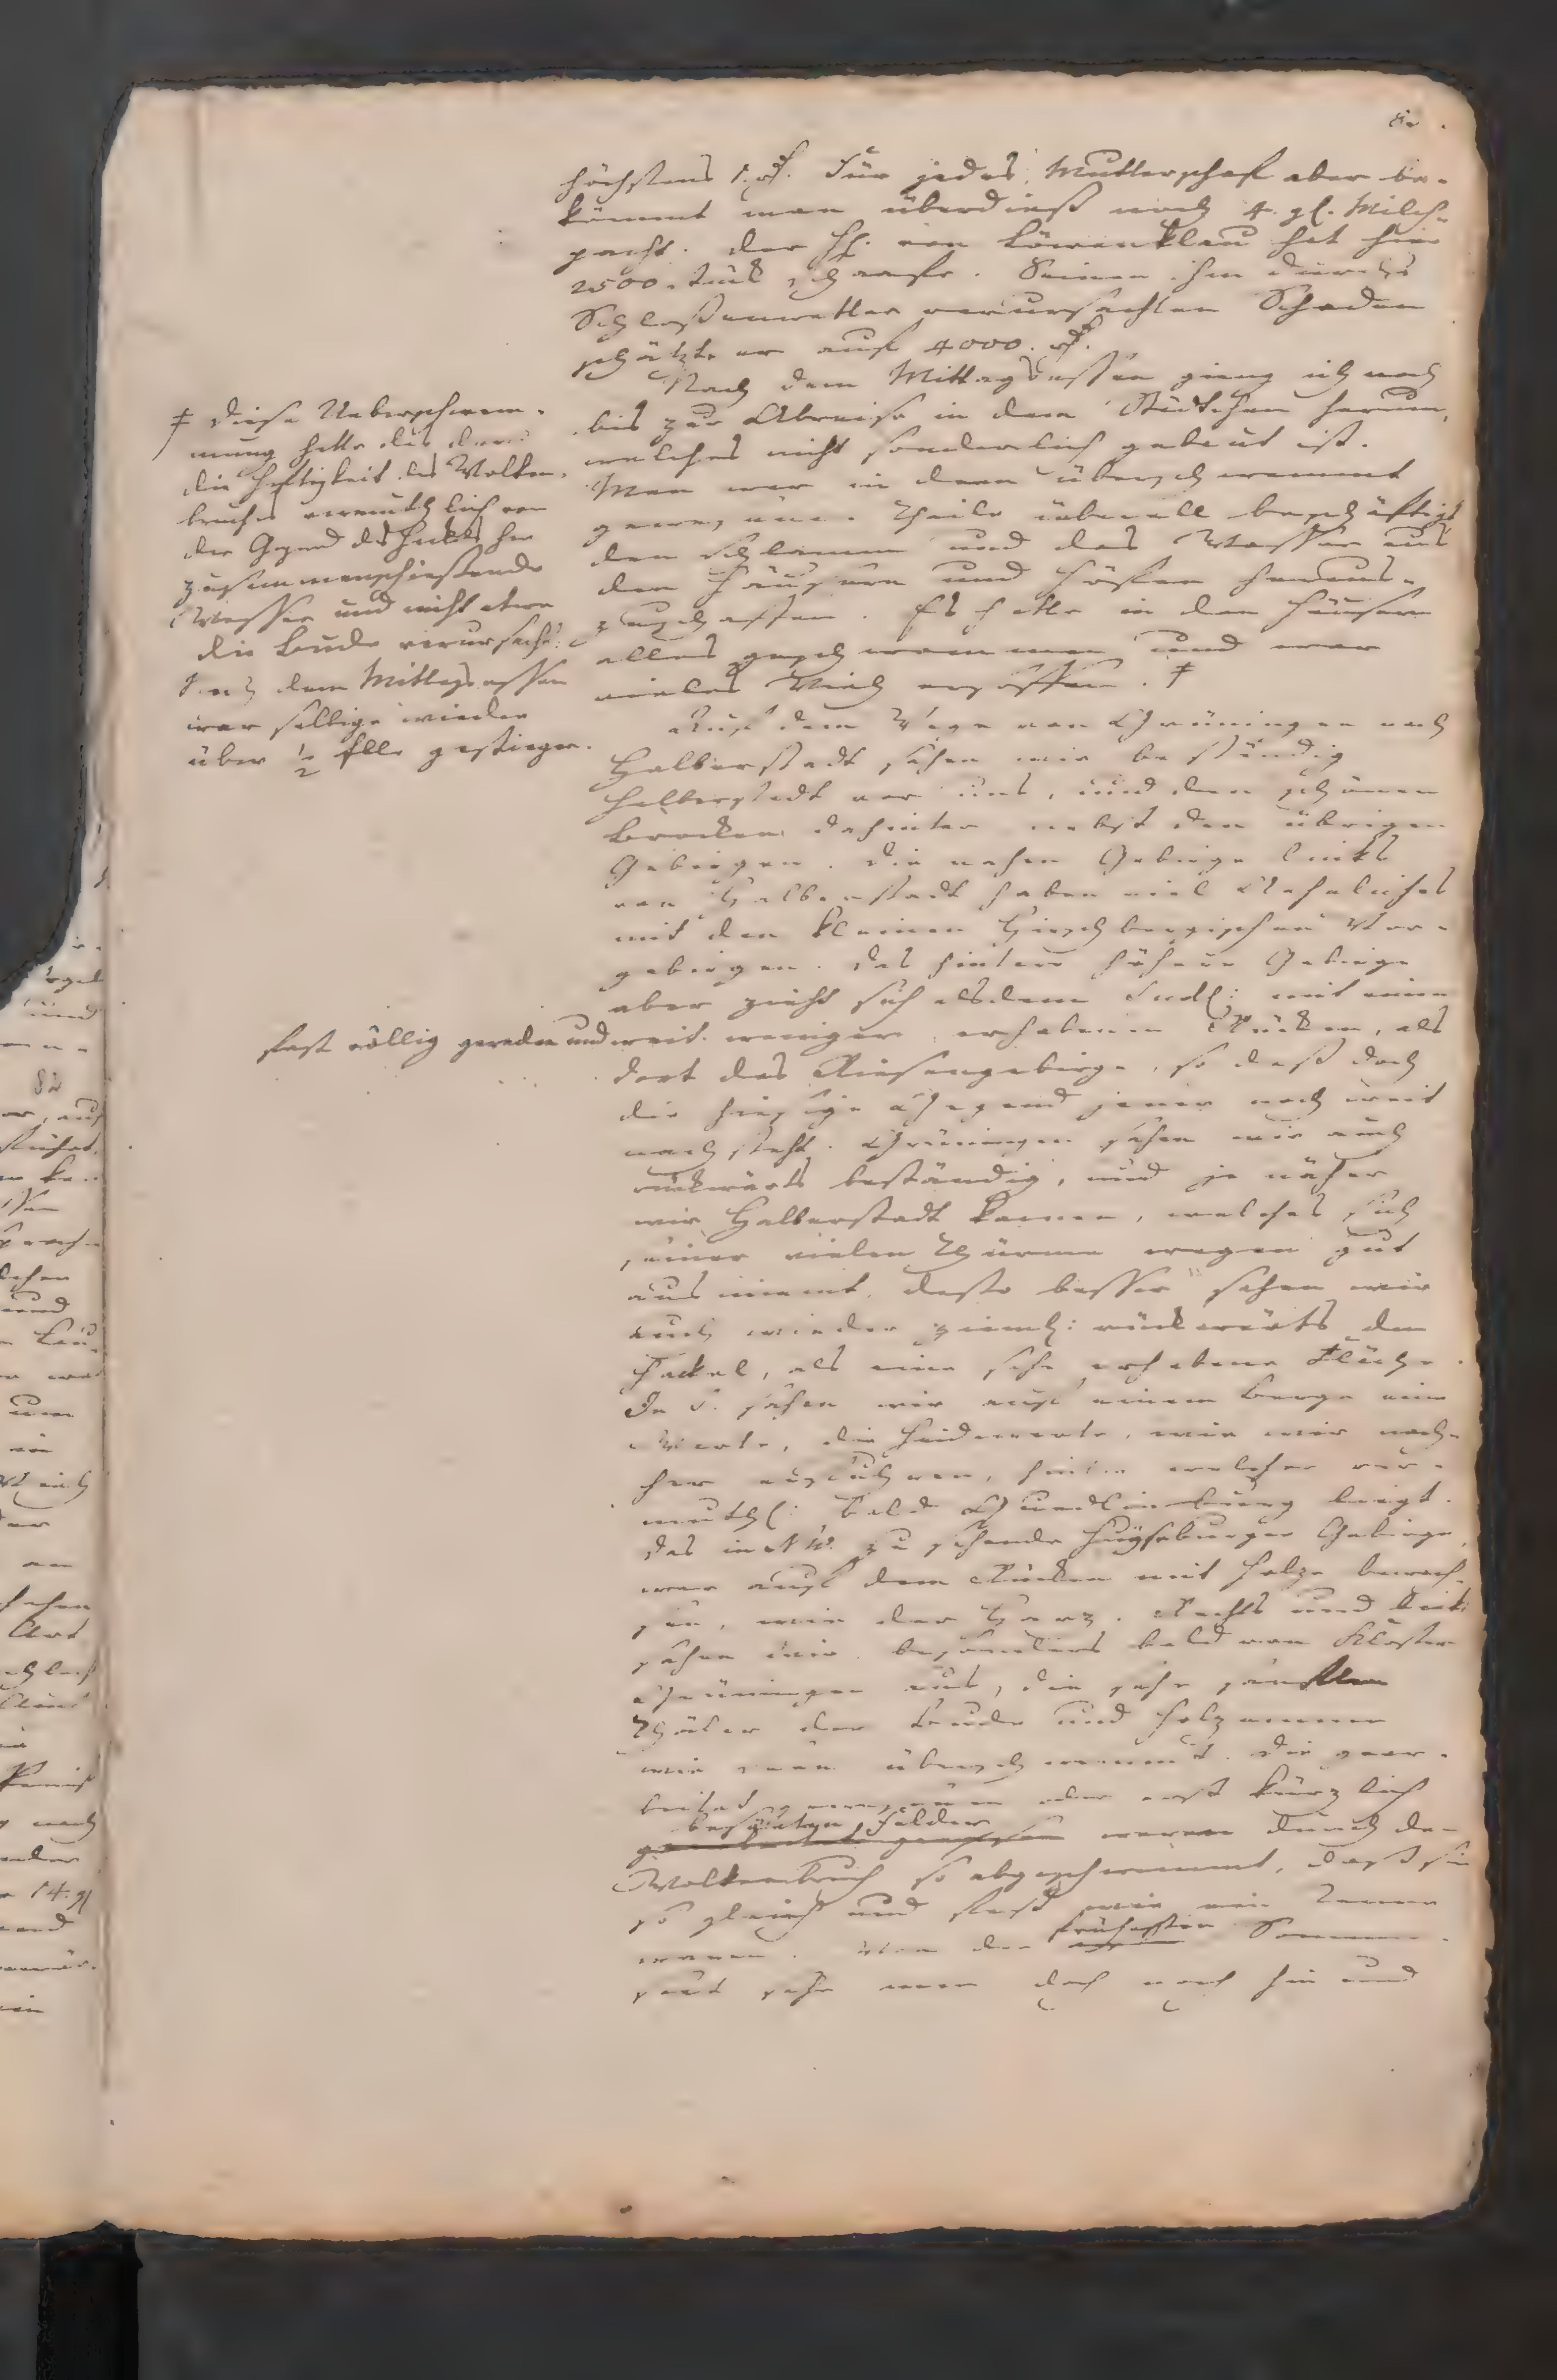 höchstens 1. rf. Für jedes Mutterschaf aber be-
kömmt man überdieß noch 4. gl. Milch-
pacht. Der H. von Löwenklau hat hier
2500. Stük Schaafe. Seinen ihm durchs
Schloßenwetter verursachten Schaden
schätzte er auf 4000. rf.
Nach dem Mittagsessen gieng ich noch
bis zur Abreise in dem Städtchen herum,
welches nicht sonderlich gebaut ist.
Man war in dem überschwemmt
gewesenen Theile überall beschäftigt
den Schlamm und das Wasser aus
den Häusern und Höffen heraus-
zuschaffen. Es hatte in den Häusern
alles geschwommen und war
vieles Vieh ersoffen. ‡
‡ Diese Ueberschwem-
mung hatte das durch
die Heftigkeit des Wolken-
bruches vermuthlich von
der Gegend des Hakels her
zusammenschießende
Wasser und nicht etwa
die Bude verursacht.
Nach dem Mittagsessen
war selbige wieder
über ½ Elle gestiegen.
Auf dem Wege von Gröningen nach
Halberstadt sahen wir beständig
Halberstadt vor uns, und den schönen
Brocken dahinter nebst den übrigen
Gebirgen. Die nahen Gebirge links
von Halberstadt haben viel Aehnliches
mit den kleinen Hirschbergischen Vor-
gebirgen. Das hintere höhere Gebirge
aber zieht sich alsdenn endl: mit einem
fast völlig geraden und weit weniger erhabenen Rücken, als
dort das Riesengebirge, so daß doch
die hiesige Gegend jener noch weit
nachsteht. Gröningen sahen wir auch
rückwärts beständig, und je näher
wir Halberstadt kamen, welches sich
seiner vielen Thürme wegen gut
ausnimmt, desto besser sahen wir
auch wieder ziemlich: rückwärts den
Hackel, als eine sehr erhabene Fläche.
In S. sahen wir auf einem Berge eine
Warte, die wie wir nach-
her erfuhren, hinter welcher ver-
muthl: bald Quedlinburg liegt.
Das in NW. zu sehende Huyseburger Gebirge,
war auf dem Rücken mit Holze bewach-
sen, wie der Harz. Rechts und links
sahen wir besonders bald von Kloster
Gröningen aus, die sehr sanften
Thäler der Bude und Holzemme
überschwemmt. Die gear-
beitet gewesenen oder erst kürzlich
besäeten Felder waren durch den
Wolkenbruch so abgeschwemmt, daß sie
so gleich und fest wie ein Tenne
waren. Von der frühesten Sommer-
saat sahe man doch noch hin und